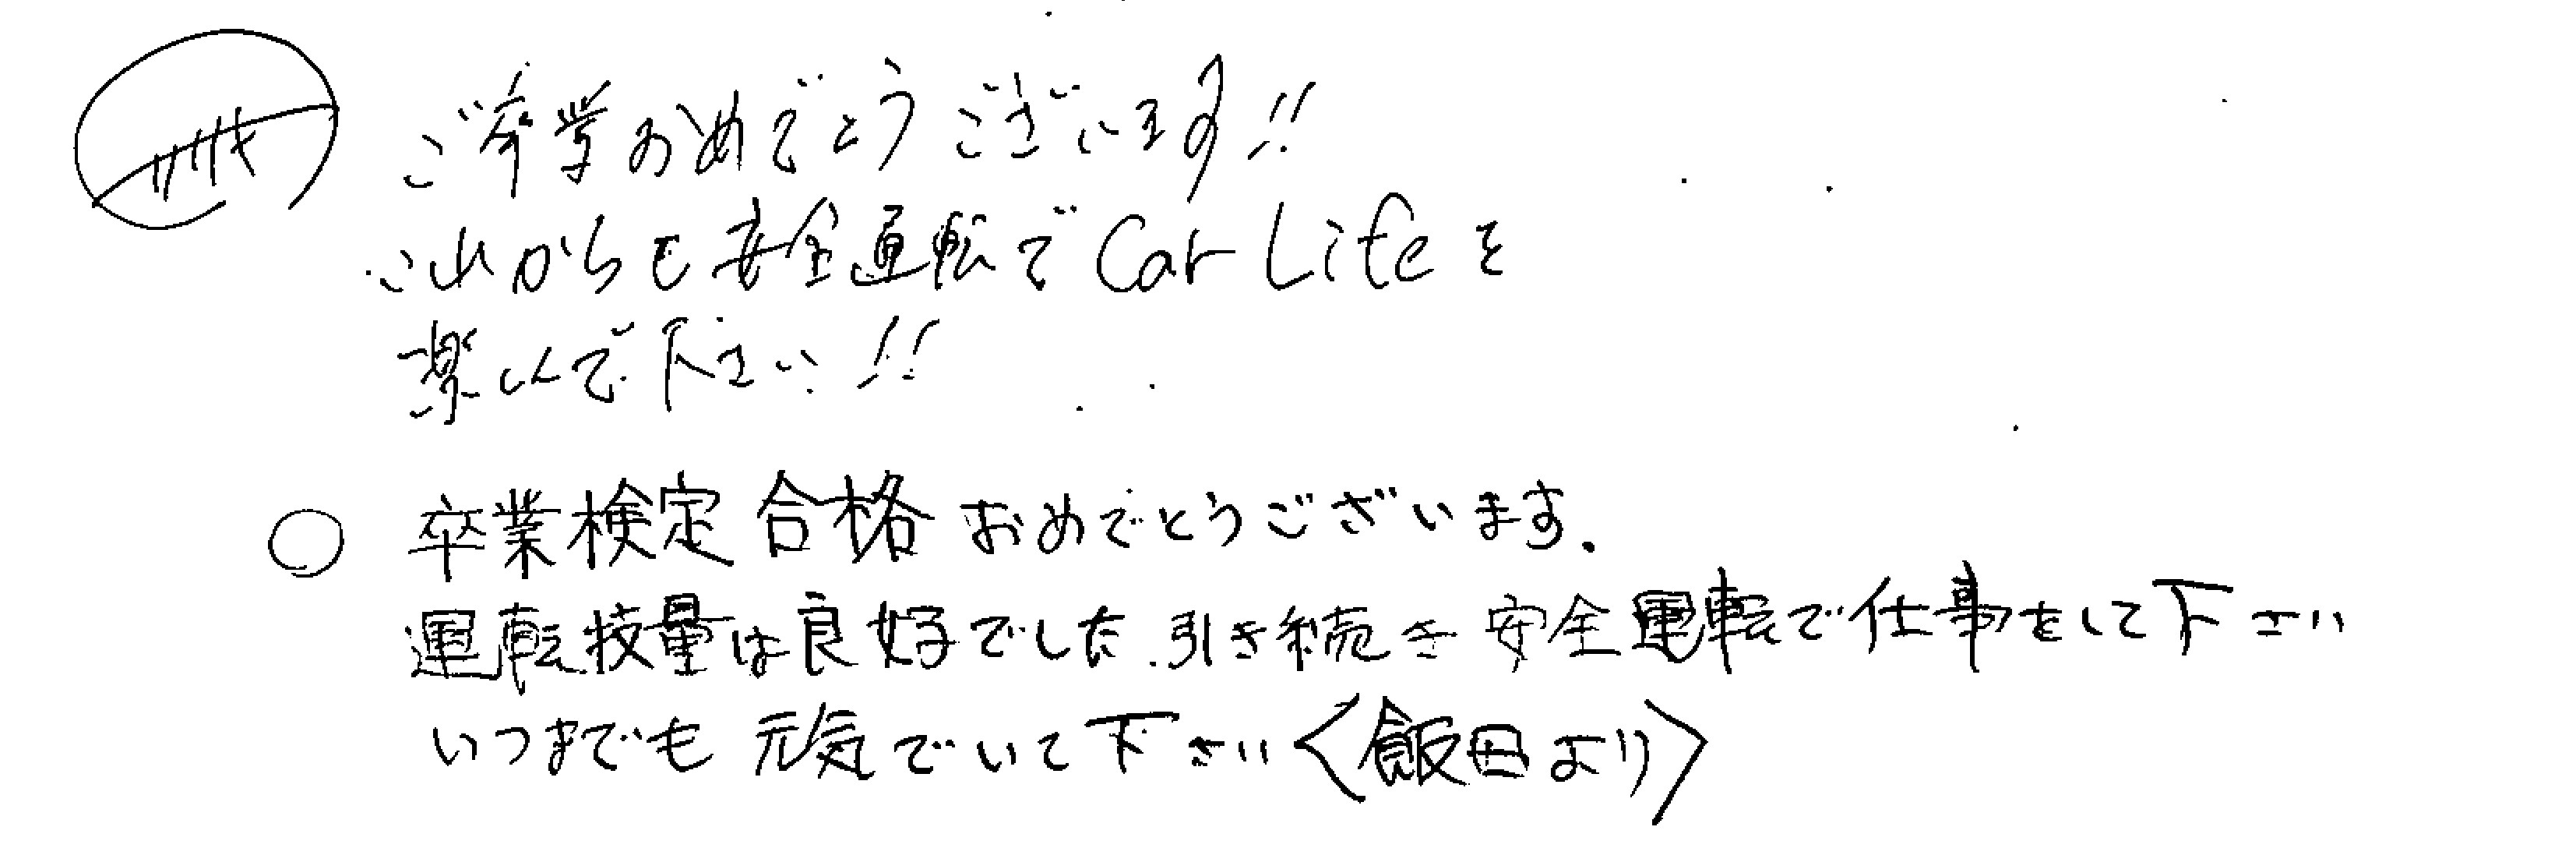 ご卒業おめでとうございます!!
これからも安全運転でCar Lifeを
楽しんで下さい!!
○ 卒業検定合格おめでとうございます.
運転技量は良好でした.引き続き安全運転で仕事をして下さい
いつまでも元気でいて下さい<飯田より>